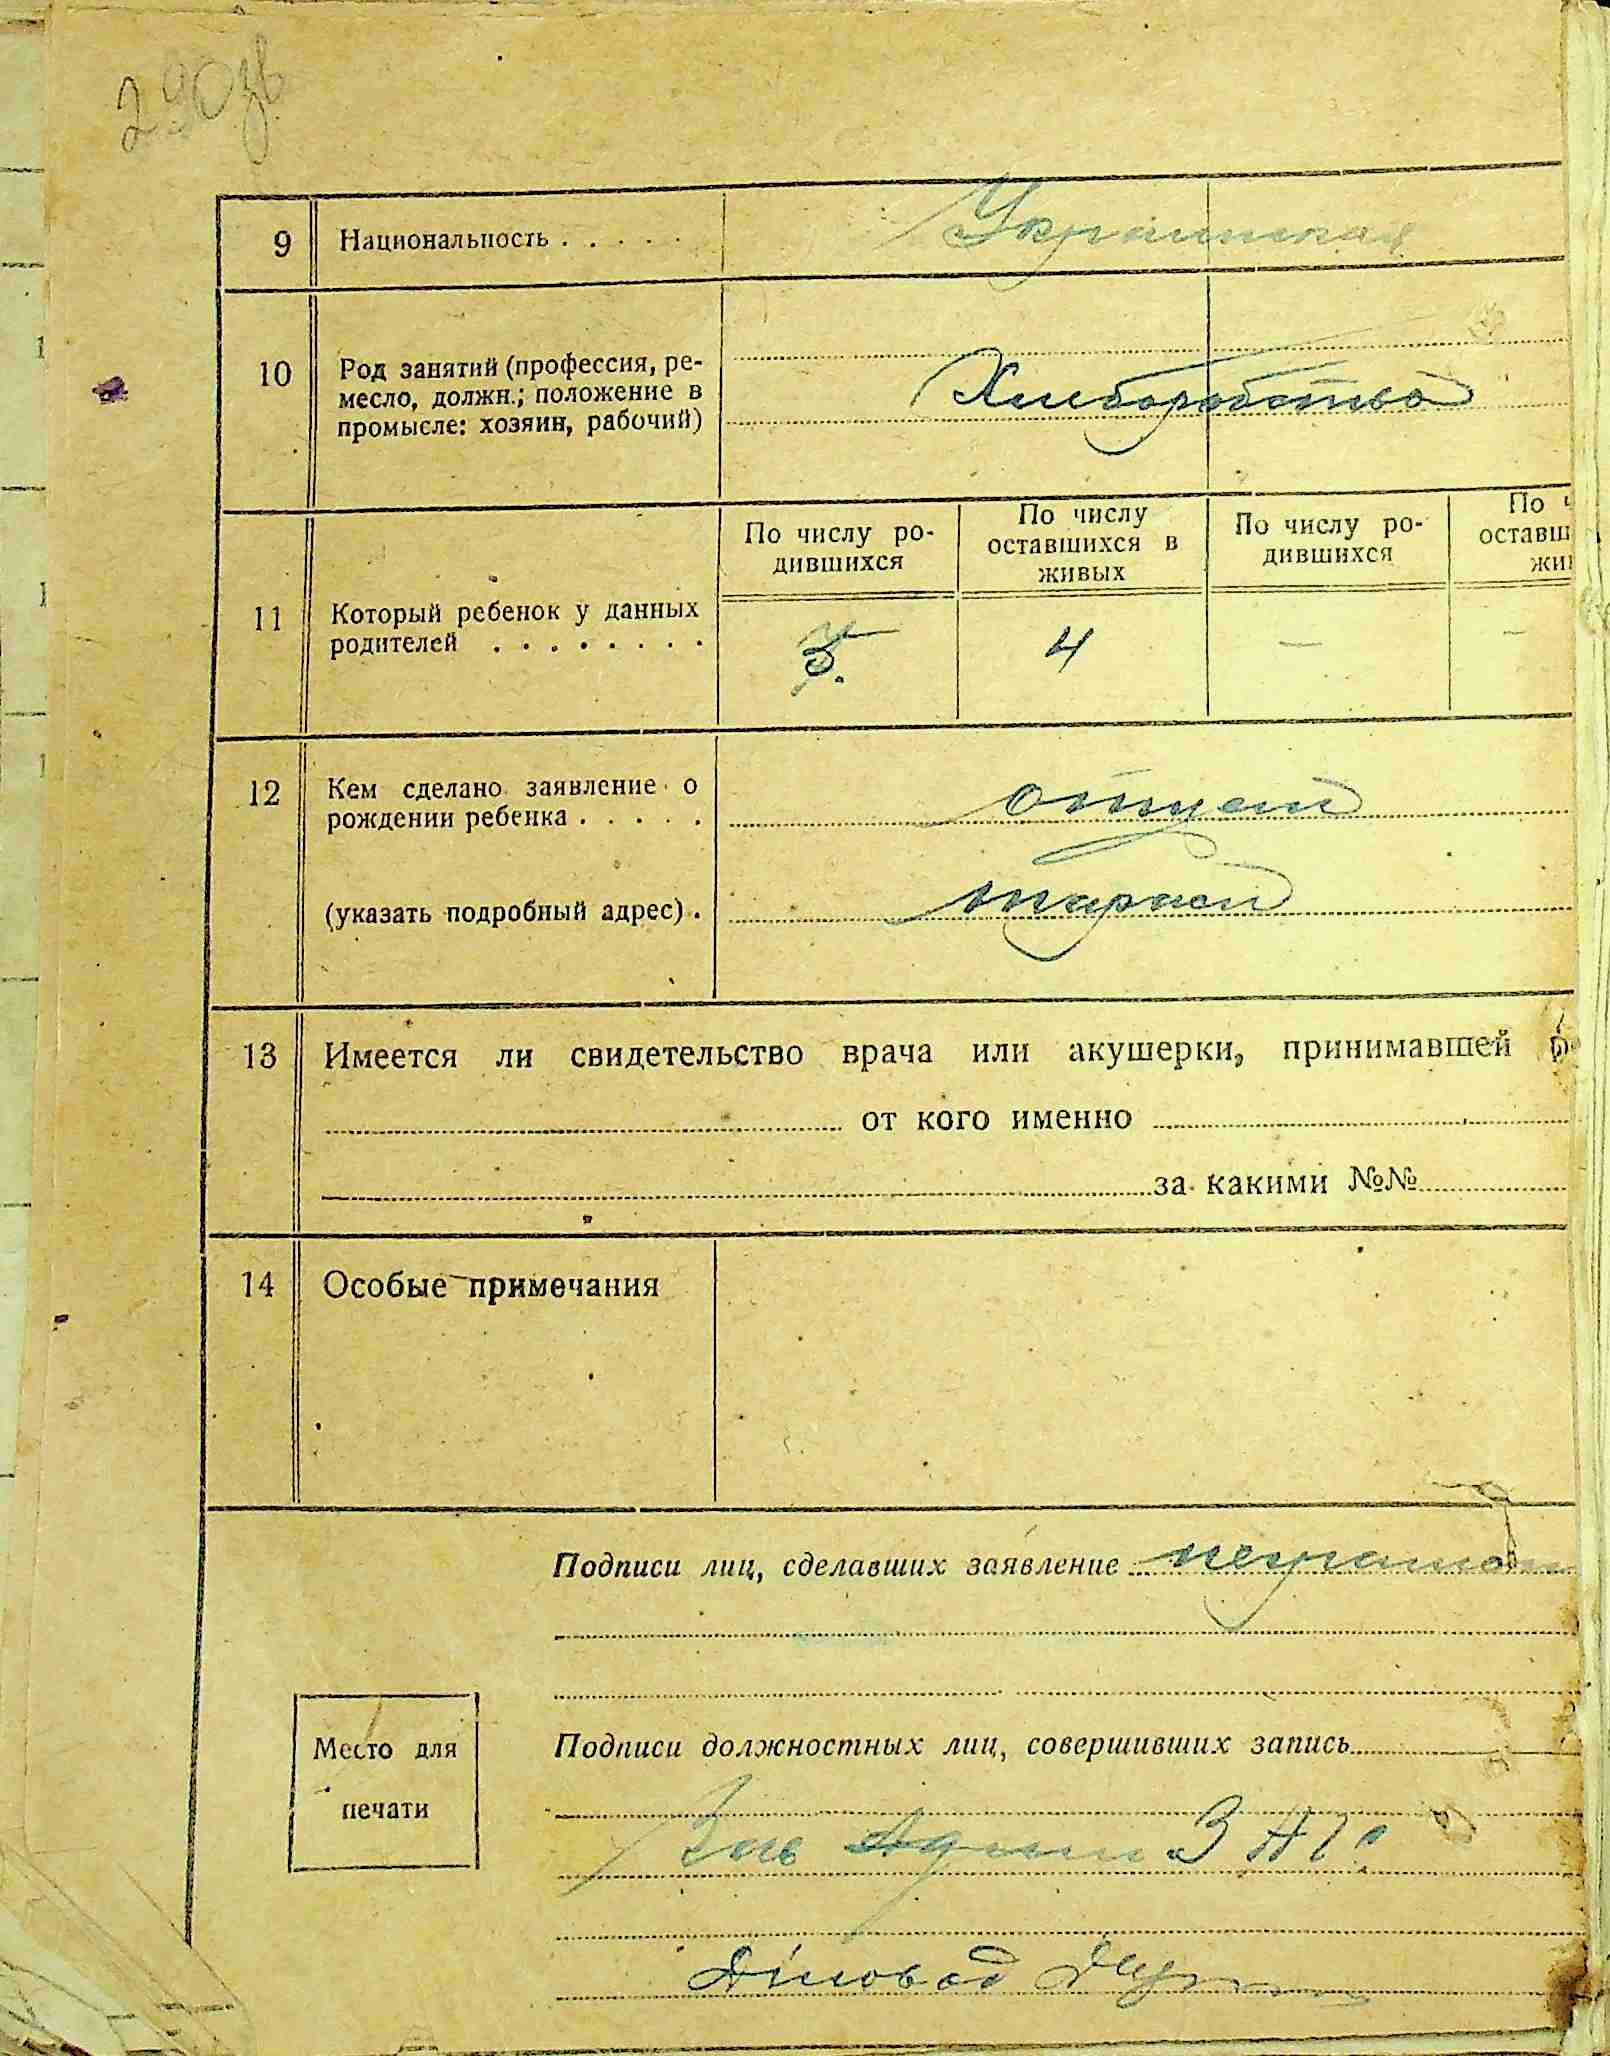 290зв
9 Национальность . . . . . Украинская
10 Род занятий (профессия, ре-
месло, должн.; положение в
промысле: хозяин, рабочий) Хлеборобство
По числу ро-
дившихся
По числу
оставшихся в
живых
По числу ро-
дившихся
По ч
оставш
жив
11 Который ребенок у данных
родителей . . . . . . . . 5. 4 — —
12 Кем сделано заявление о
рождении ребенка . . . . . отцем
(указать подробный адрес) .
13 Имеется ли свидетельство врача или акушерки, принимавшей
от кого именно
за какими №№
14 Особые примечания
Подписи лиц, сделавших заявление неграмот
Место для
печати
Подписи должностных лиц, совершивших запись
Зав ЗАГС
Діловод